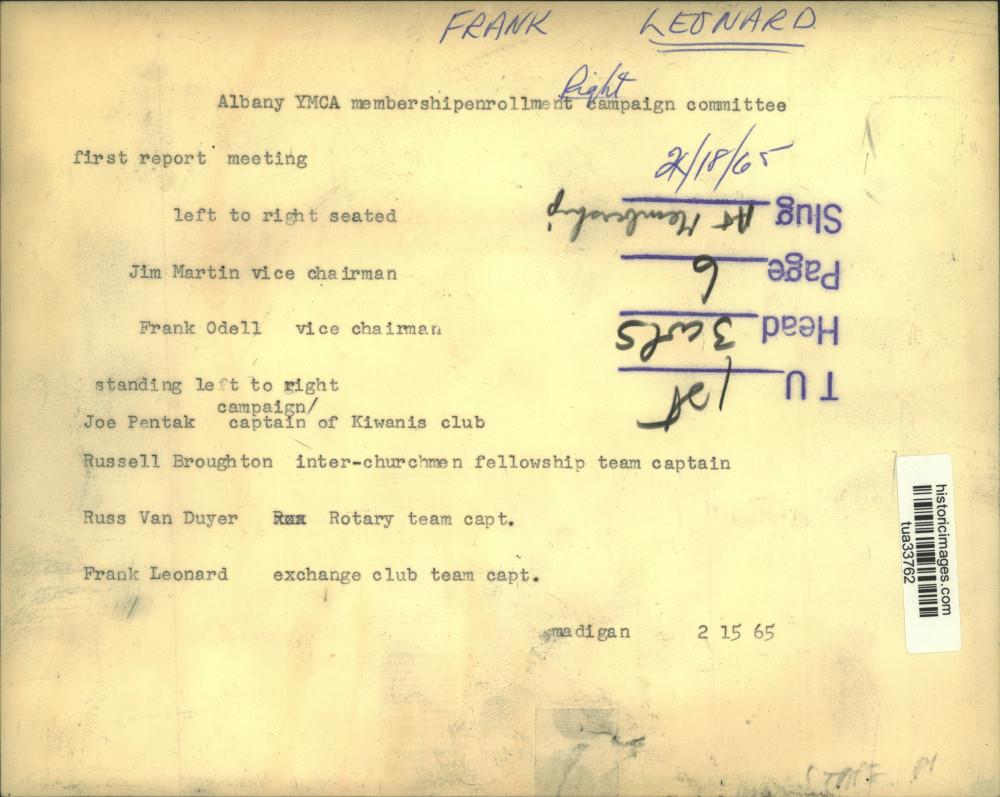 FRANK LEONARD
Right
Albany YMCA membershipenrollment campaign committee
first report meeting
2/18/65
left to right seated
Slug A+ Membership
Jim Martin vice chairman
Page 6
Frank Odell vice chairman
Head 3 cols
standing left to right
T U 1st
campaign/
Joe Pentak captain of Kiwanis club
Russell Broughton inter-churchmen fellowship team captain
Russ Van Duyer Rox Rotary team capt.
Frank Leonard exchange club team capt.
madigan 2 15 65
historicimages.com
tua33762
STAFF